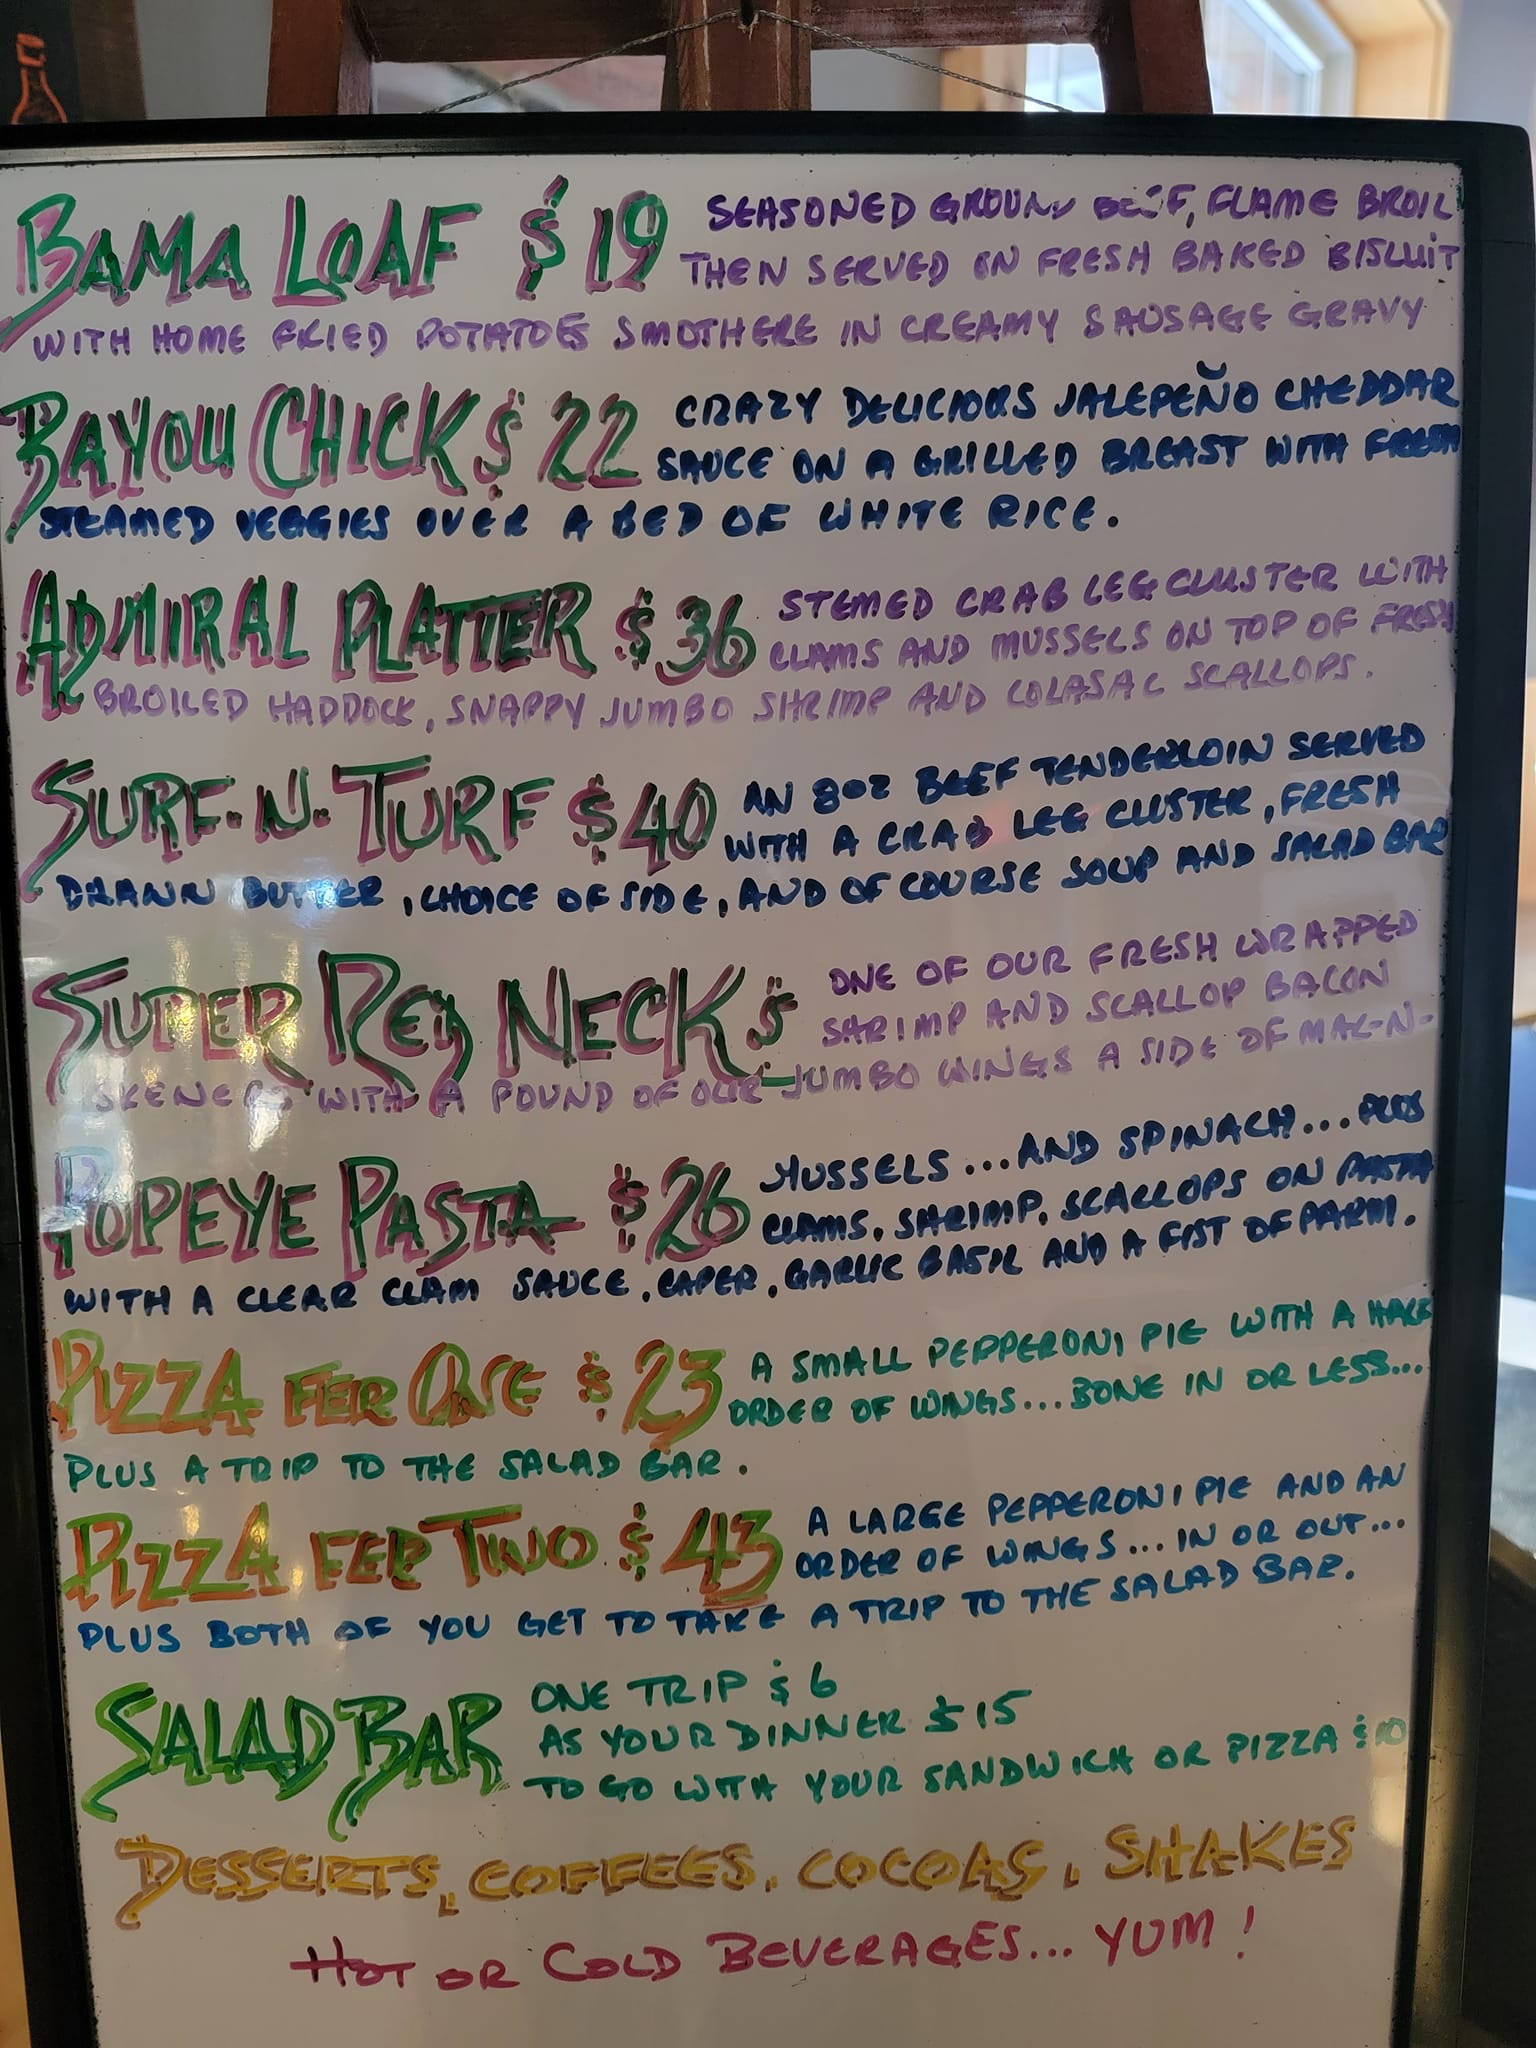 BAMA LOAF $19 SEASONED GROUND BEEF, FLAME BROIL
THEN SERVED ON FRESH BAKED BISCUIT
WITH HOME FRIED POTATOES SMOTHERE IN CREAMY SAUSAGE GRAVY
BAYOU CHICK $22 CRAZY DELICIOUS JALEPEÑO CHEDDAR
SAUCE ON A GRILLED BREAST WITH FRESH
STEAMED VEGGIES OVER A BED OF WHITE RICE.
ADMIRAL PLATTER $36 STEMED CRAB LEG CLUSTER WITH
CLAMS AND MUSSELS ON TOP OF FRESH
BROILED HADDOCK, SNAPPY JUMBO SHRIMP AND COLASAL SCALLOPS.
SURF-N-TURF $40 AN 8OZ BEEF TENDERLOIN SERVED
WITH A CRAB LEG CLUSTER, FRESH
DRAWN BUTTER, CHOICE OF SIDE, AND OF COURSE SOUP AND SALAD BAR
SUPER RED NECK $ ONE OF OUR FRESH WRAPPED
SHRIMP AND SCALLOP BACON
SKENERS WITH A POUND OF OUR JUMBO WINGS A SIDE OF MAC-N-
POPEYE PASTA $26 MUSSELS...AND SPINACH...PLUS
CLAMS, SHRIMP, SCALLOPS ON PASTA
WITH A CLEAR CLAM SAUCE, CAPER, GARLIC BASIL AND A FIST OF PARM.
PIZZA FER ONE $23 A SMALL PEPPERONI PIE WITH A HALF
ORDER OF WINGS...BONE IN OR LESS...
PLUS A TRIP TO THE SALAD BAR.
PIZZA FER TWO $43 A LARGE PEPPERONI PIE AND AN
ORDER OF WINGS...IN OR OUT...
PLUS BOTH OF YOU GET TO TAKE A TRIP TO THE SALAD BAR.
SALAD BAR ONE TRIP $6
AS YOUR DINNER $15
TO GO WITH YOUR SANDWICH OR PIZZA $10
DESSERTS, COFFEES, COCOAS, SHAKES
HOT OR COLD BEVERAGES... YUM!